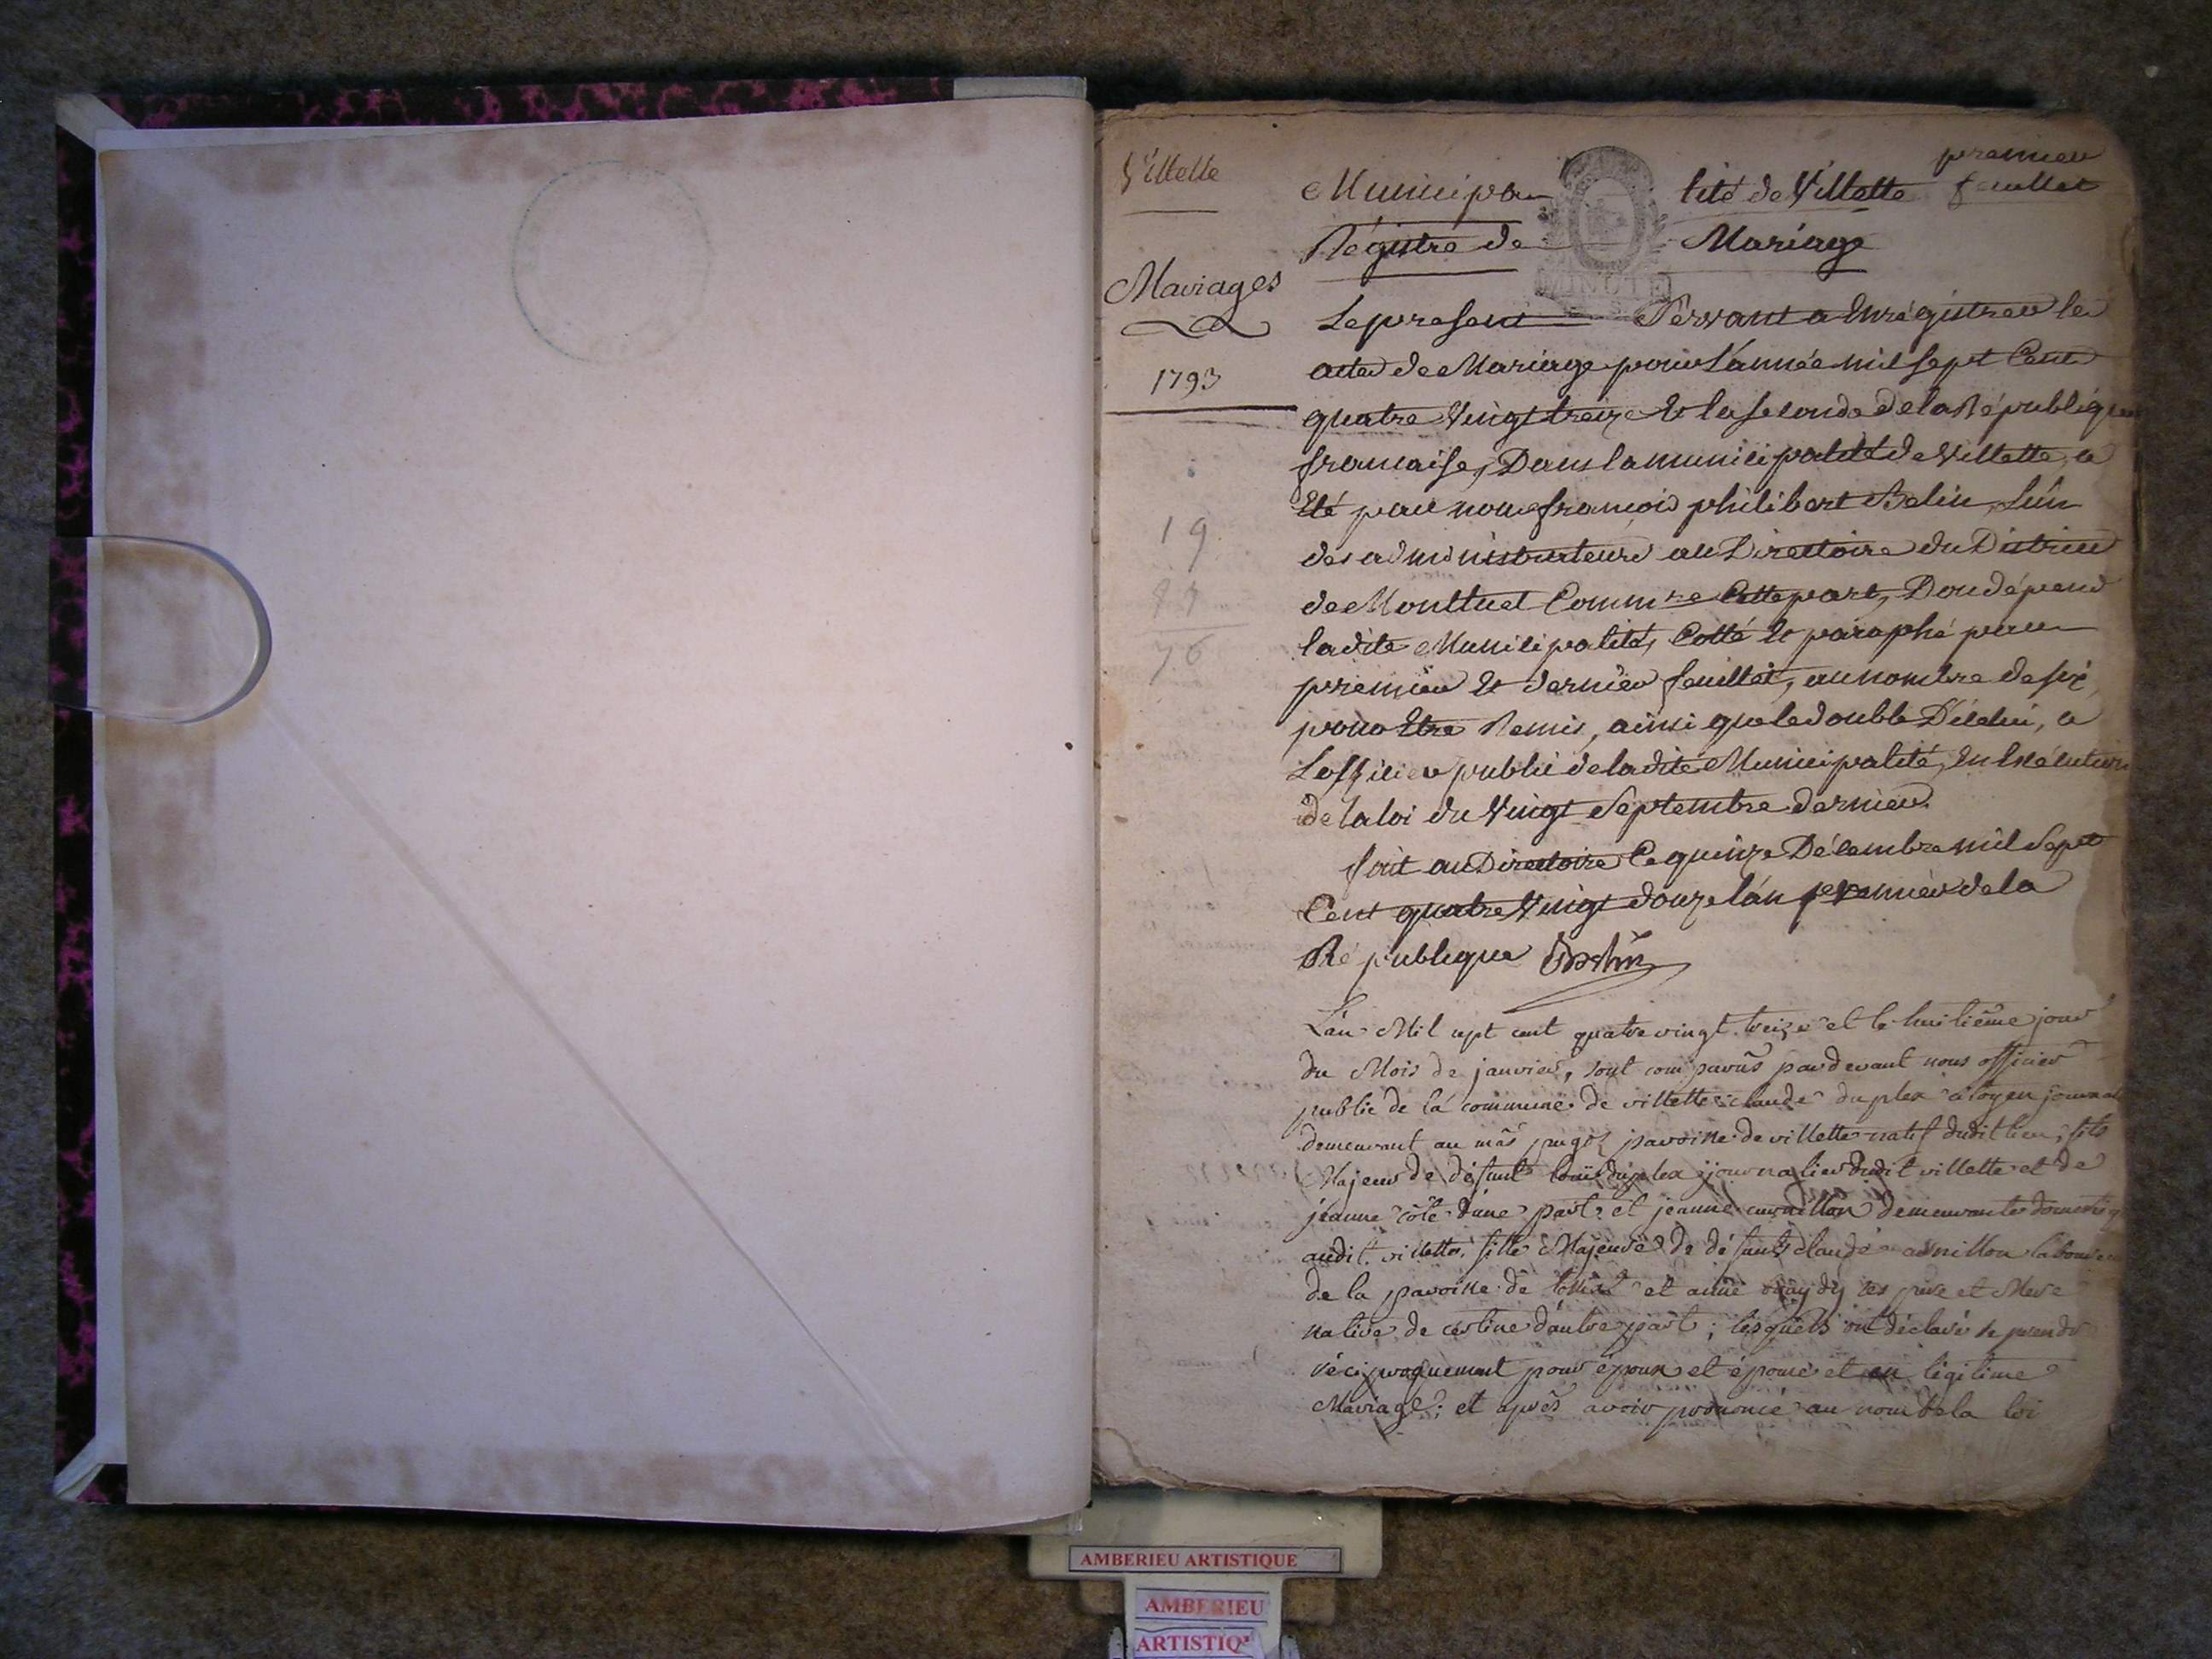 Villette
Mariages
1793
19
76
premier
feuillet
Municipalité de Villette
Régistre de Mariage
Le present Servant a Enrégistrer les
actes de Mariage pour L'année mil sept Cent
quatre Vingt treize & la seconde de la République
francaise, Dans la municipalité de Villette, a
Eté par nous françois philibert Belin, L'un
des administrateurs au Directoire du District
de Montluel Commre Cette part, Dou dépend
ladite Municipalité, Cotté & paraphé par
premier & dernier feuillet, au nombre de six
pour Etre Remis, ainsi que le double D'icelui, a
L'officier public de ladite Municipalité, En Exécution
de la loi du Vingt Septembre dernier.
fait au Directoire Ce quinze Décembre mil Sept
Cent quatre Vingt douze l'an premier de la
République Belin
L'an Mil sept cent quatre vingt treize et le huitième jour
du Mois de janvier, sont comparûs pardevant nous officier
public de la commune de villette claude duplex citoyen journal
demeurant au mâs paroisse de villette natif dudit lieu, fils
Majeur de défunt Louis duplex journalier dudit villette et de
jeanne côte d'une part et jeanne demeurante domestiq
audit villette, fille Majeure de défunts claude laboureur
de la paroisse de et anne ses père et Mere
native de d'autre part; lesquels ont déclaré se prendre
réciproquement pour époux et épouse et en légitime
Mariage; et après avoir prononcé au nom de la loi
AMBERIEU ARTISTIQUE
AMBERIEU
ARTISTIQ